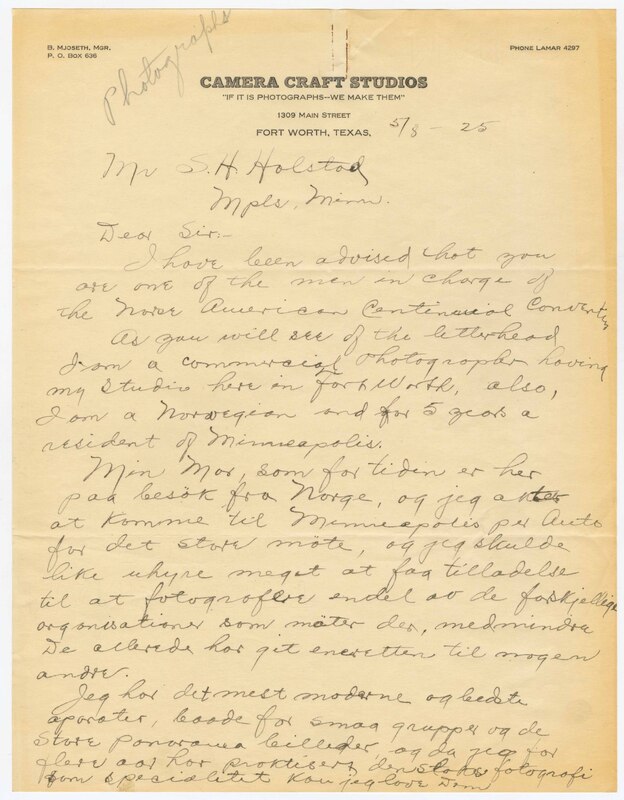 B. MJOSETH, MGR.
P. O. BOX 636
Photographs
PHONE LAMAR 4297
CAMERA CRAFT STUDIOS
"IF IT IS PHOTOGRAPHS--WE MAKE THEM"
1309 MAIN STREET
FORT WORTH, TEXAS, 5/8 - 25
Mr S. H. Holstad
Mpls, Minn.
Dear Sir:-
I have been advised that you
are one of the men in charge of
the Norse American Centennial Convention
As you will see of the letterhead
I am a commercial Photographer having
my Studio here in Fort Worth, also,
I am a Norwegian and for 5 years a
resident of Minneapolis.
Min Mor, som for tiden er her
paa besök fra Norge, og jeg akter
at komme til Minneapolis per Auto
for det store möte, og jeg skulde
like uhyre meget at faa tilladelse
til at fotografere endel av de forskjellige
organisationer som möter der, medmindre
De allerede har git eneretten til nogen
andre.
Jeg har det mest moderne og bedste
aparater, baade for smaa grupper og de
store panorama billeder, og da jeg for
flere aar har praktisert den slags fotografi
som specialitet kan jeg love Dem